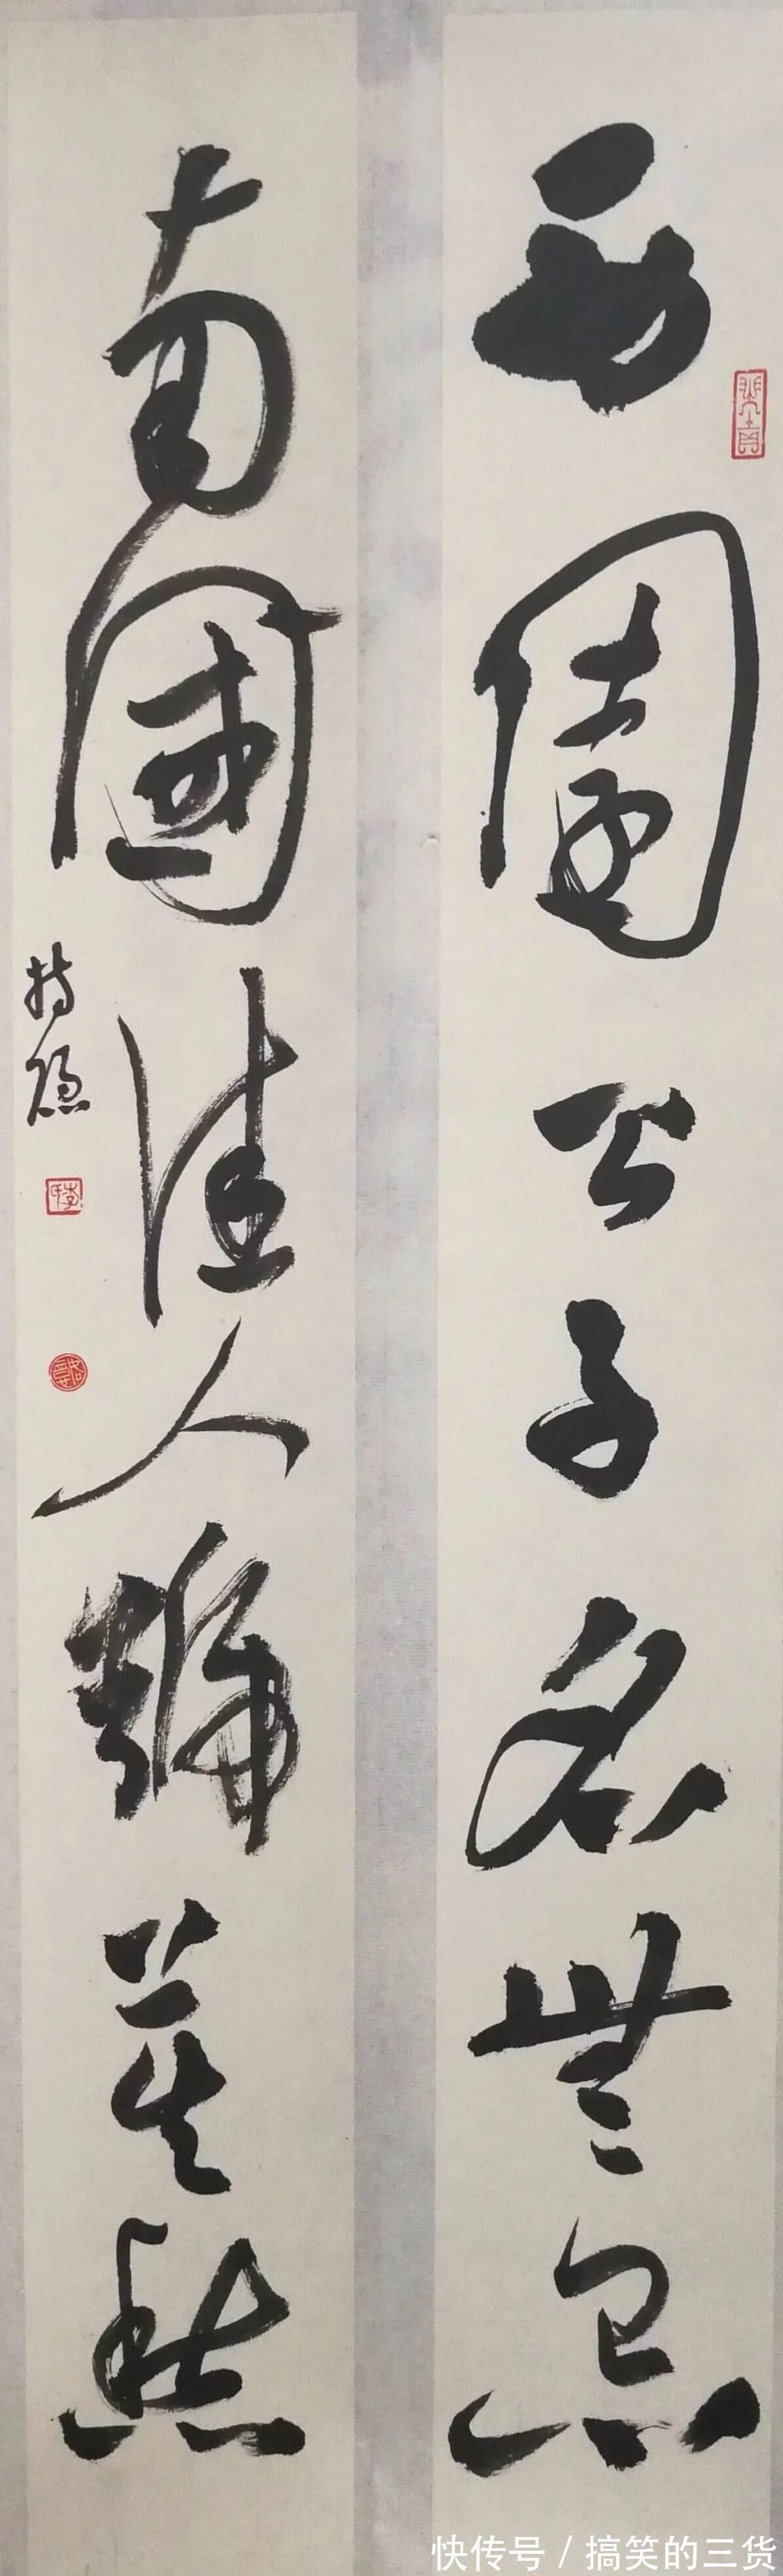 西園公子名無忌
南國佳人號莫愁
快传号 / 搞笑的三货